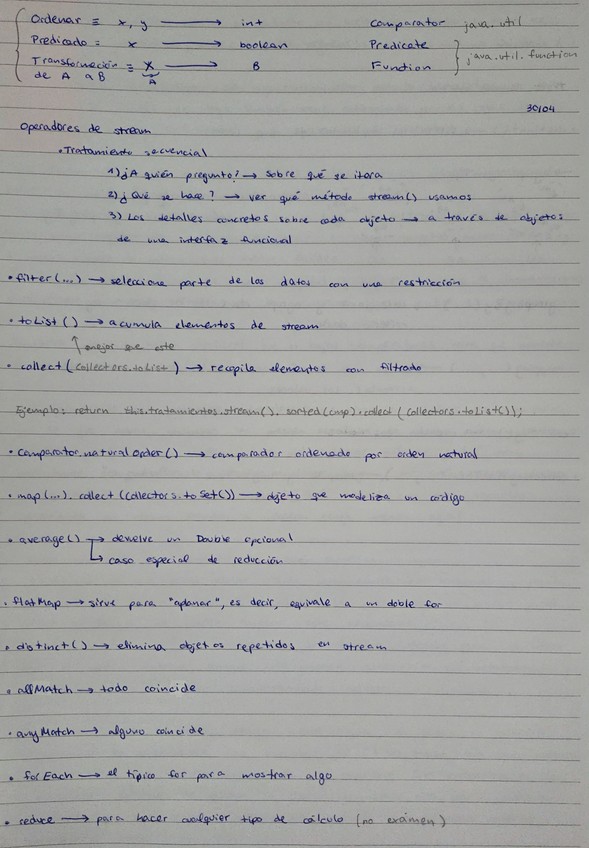 Ordenar ≡ x, y → int Comparator java.util
Predicado = x → boolean Predicate
Transformación = x → B Function java.util.function
de A a B A
30/04
Operadores de stream
• Tratamiento secuencial
1) ¿A quién pregunto? → sobre qué se itera
2) ¿Qué se hace? → ver qué método stream() usamos
3) Los detalles concretos sobre cada objeto → a través de objetos
de una interfaz funcional
• filter(...) → selecciona parte de los datos con una restricción
• toList() → acumula elementos de stream
↑ mejor que este
• collect(Collectors.toList) → recopila elementos con filtrado
Ejemplo: return this.tratamientos.stream().sorted(cmp).collect(Collectors.toList());
• Comparator.naturalOrder() → comparador ordenado por orden natural
• map(...).collect(Collectors.toSet()) → objeto que modeliza un código
• average() → devuelve un Double opcional
↳ caso especial de reducción
• flatMap → sirve para "aplanar", es decir, equivale a un doble for
• distinct() → elimina objetos repetidos en stream
• allMatch → todo coincide
• anyMatch → alguno coincide
• forEach → el típico for para mostrar algo
• reduce → para hacer cualquier tipo de cálculo (no exámen)